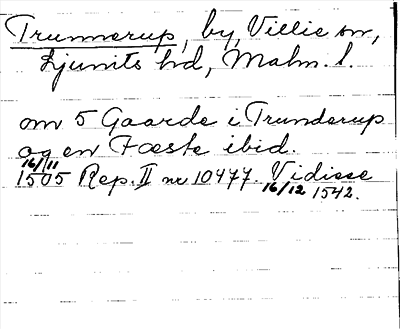 Trunnerup, by, Villie sn,
Ljunits hd, Malm. l.
om 5 Gaarde i Trunderup
og en Fæste ibid.
16/11
1505 Rep. II nr 10477. Vidisse
16/12 1542.